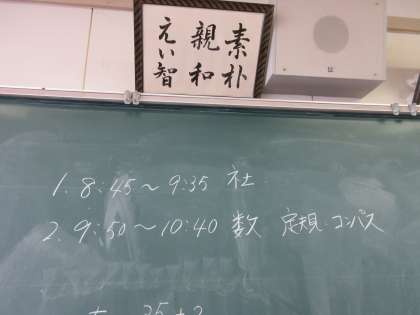 素朴
親和
えい智
1. 8:45～9:35 社
2. 9:50～10:40 数 定規・コンパス